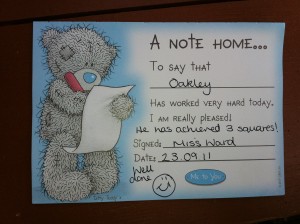 A NOTE HOME...
TO SAY THAT
Oakley
HAS WORKED VERY HARD TODAY.
I AM REALLY PLEASED!
He has achieved 3 squares!
SIGNED: Miss Ward
DATE: 23.09.11
Well done
Me to you